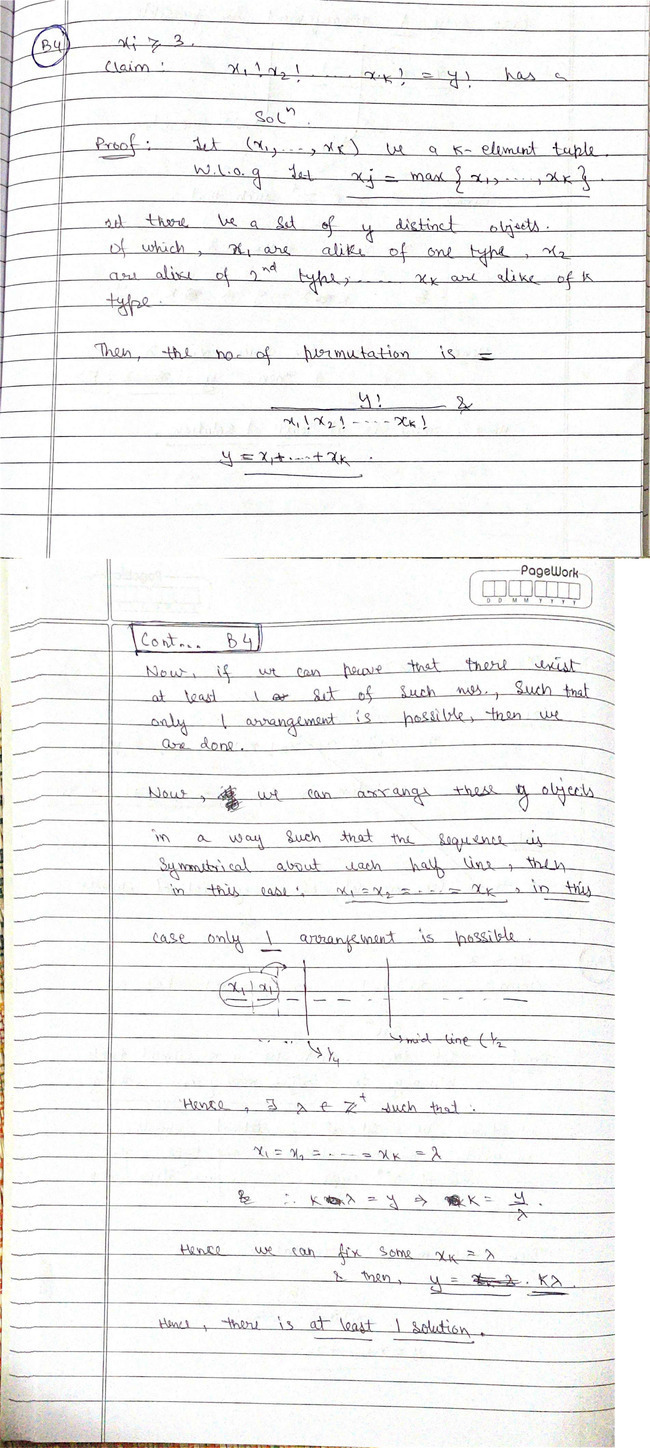 B4
xi ≥ 3.
Claim: x1! x2! ..... xk! = y! has a
Solⁿ.
Proof: Let (x1, ..., xk) be a k-element tuple.
W.l.o.g let xj = max{x1, ..., xk}.
let there be a set of y distinct objects.
Of which, x1 are alike of one type, x2
are alike of 2nd type, ..... xk are alike of k
type.
Then, the no. of permutation is =
y! / x1! x2! ..... xk! &
y = x1 + .... + xk.
PageWork
D D M M Y Y Y Y
Cont... B4
Now, if we can prove that there exist
at least 1 set of such nos., such that
only 1 arrangement is possible, then we
are done.
Now, we can arrange these y objects
in a way such that the sequence is
symmetrical about each half line, then
in this case: x1 = x2 = .... = xk, in this
case only 1 arrangement is possible.
x1 | x1
→ 1/4
→ mid line (1/2
Hence, ∃ λ ∈ Z⁺ such that:
x1 = x2 = .... = xk = λ
& ∴ kλ = y ⇒ k = y/λ.
Hence we can fix some xk = λ
& then, y = kλ.
Hence, there is at least 1 solution.